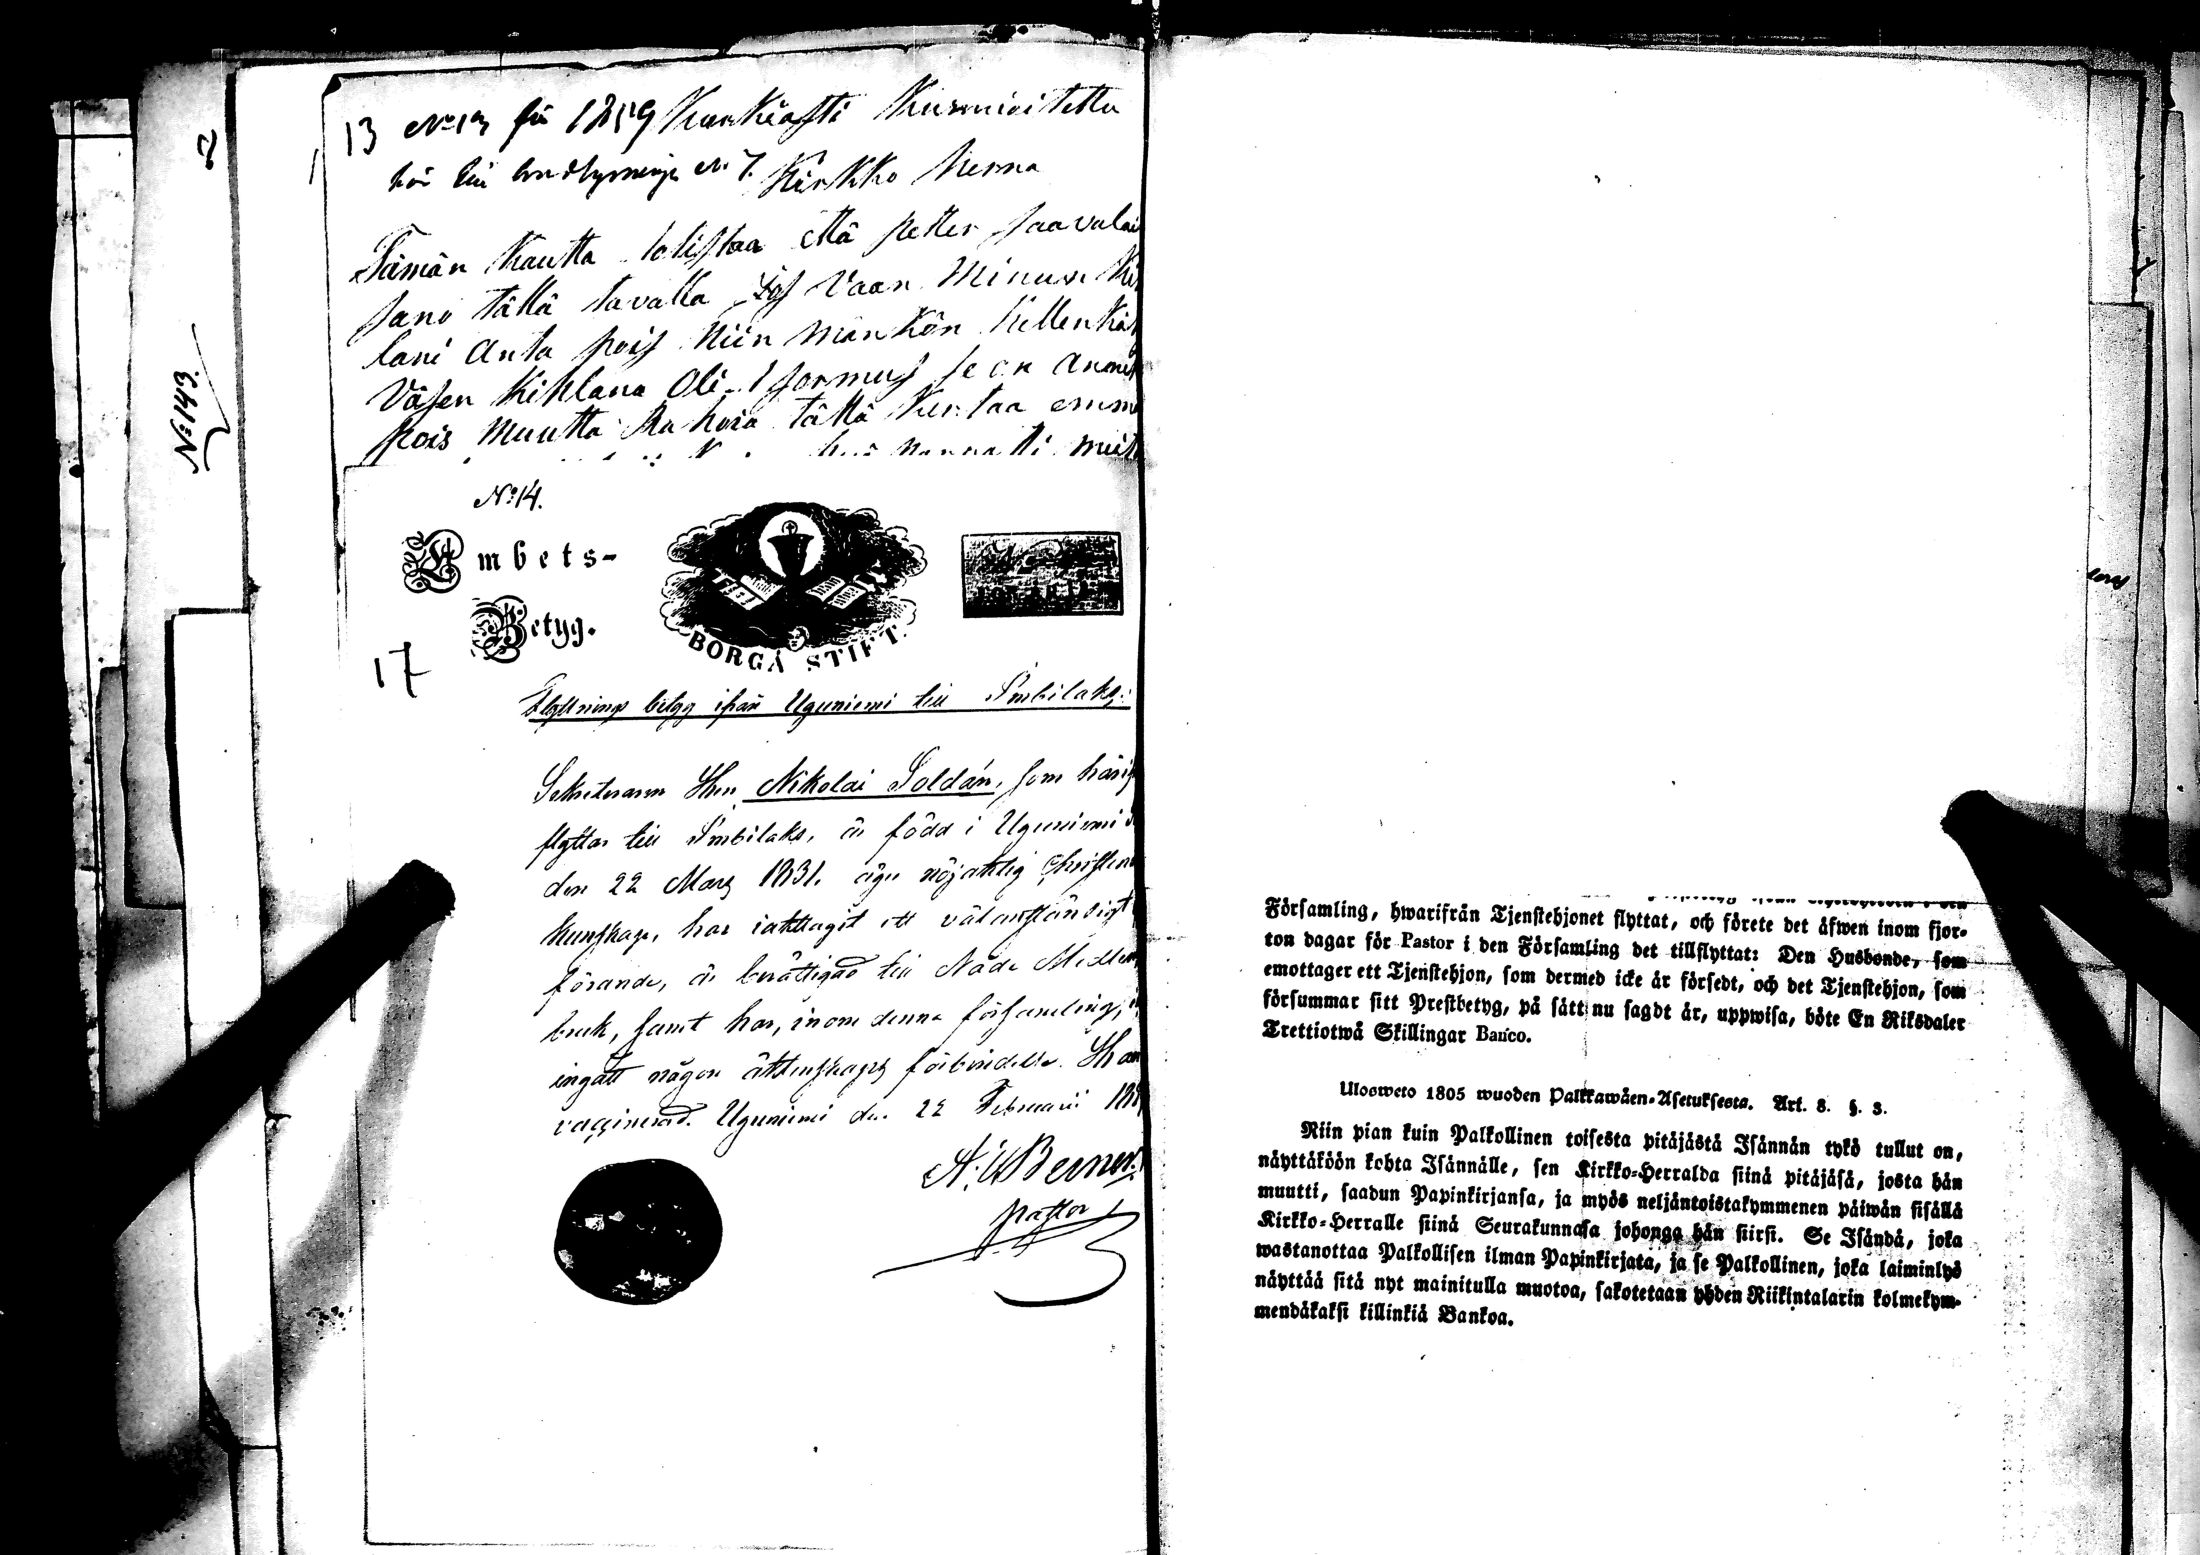 13 No 13 för 1859 Kunkiasti Kunnioitettu
hör till lysnings No 7. Kirkko Herra
Tämän Kautta totistaa että petter paavalai
sano tällä tavalla jos Vaan Minun Kih
lani Anta pois Niin mänkön Kellen Kä
Väsen Kihlana Oli 1 sormus se on Annet
pois Muutta Rahoia tällä Kertaa emme
No 143.
No 14.
Ambets-
Betyg.
BORGÅ STIFT.
17
Flyttnings betyg ifrån Uguniemi till Imbilaks.
Sekreteraren Herr Nikolai Soldán, som härif
flyttar till Imbilaks, är född i Uguniemi
den 22 Mars 1831, äger nöjaktig Christen
kunskap, har iakttagit ett välanständigt
förande, är berättigad till Nåde Medlens
bruk, samt har, inom denna församling,
ingått någon äktenskaps förbindelse. Han
vaccinerad. Uguniemi den 22 Februarii
Pastor
Församling, hwarifrån Tjenstehjonet flyttat, och förete det äfwen inom fjor-
ton dagar för Pastor i den Församling det tillflyttat: Den Husbonde, som
emottager ett Tjenstehjon, som dermed icke är försedt, och det Tjenstehjon, som
försummar sitt Prestbetyg, på sätt nu sagdt är, uppwisa, böte En Riksdaler
Trettiotwå Skillingar Banco.
Ulosweto 1805 wuoden Palkkawäen-Asetuksesta. Art. 8. §. 3.
Niin pian kuin Palkollinen toisesta pitäjästä Isännän tykö tullut on,
näyttäköön kohta Isännälle, sen Kirkko-Herralda siinä pitäjäsä, josta hän
muutti, saadun Papinkirjansa, ja myös neljäntoistakymmenen päiwän sisällä
Kirkko-Herralle siinä Seurakunnasa johonga hän siirsi. Se Isändä, joka
wastanottaa Palkollisen ilman Papinkirjata, ja se Palkollinen, joka laiminlyö
näyttää sitä nyt mainitulla muotoa, sakotetaan yhden Riikintalarin kolmekym-
mendäkaksi killinkiä Bankoa.